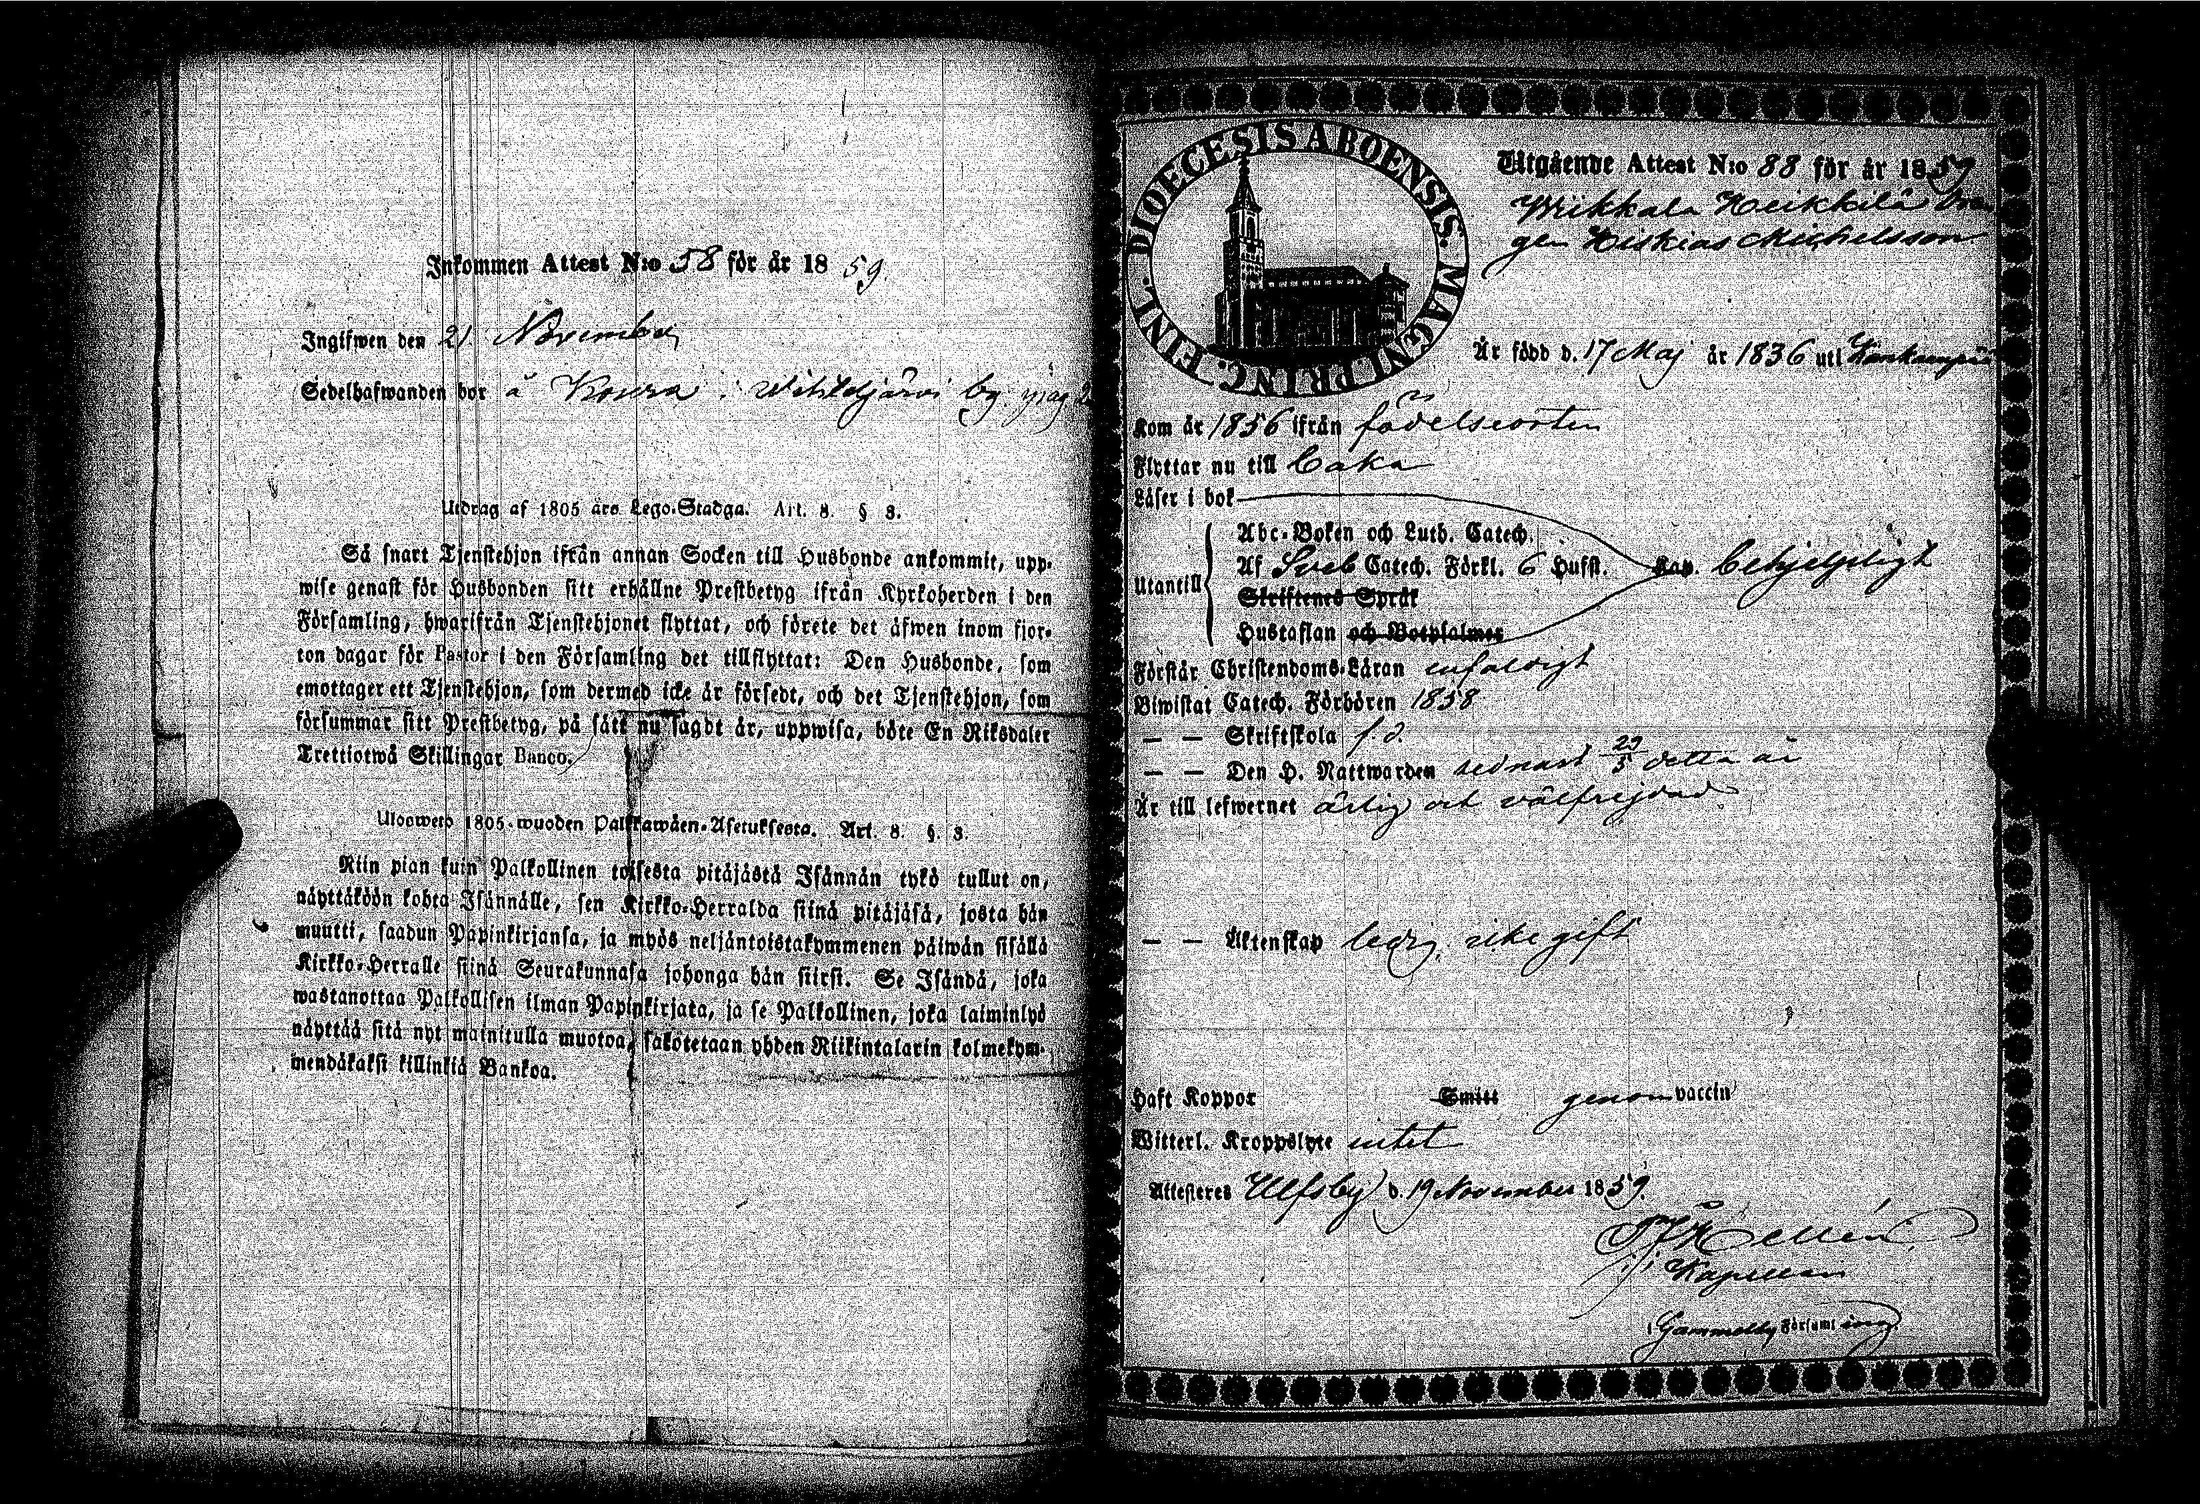 Inkommen Attest N:o 58 för år 1859.
Ingifwen den 21 November
Sedelhafwanden bor å Koura i Wihildjärvi by
Utdrag af 1805 års Lego-Stadga. Art. 8. § 3.
Så snart Tjenstehjon ifrån annan Socken till Husbonde ankommit, upp-
wise genast för Husbonden sitt erhållne Prestbetyg ifrån Kyrkoherden i den
Församling, hwarifrån Tjenstehjonet flyttat, och förete det äfwen inom fjor-
ton dagar för Pastor i den Församling det tillflyttat: Den Husbonde, som
emottager ett Tjenstehjon, som dermed icke är försedt, och det Tjenstehjon, som
försummar sitt Prestbetyg, på sätt nu sagdt är, uppwisa, böte En Riksdaler
Trettiotwå Skillingar Banco.
Ulosweto 1805-wuoden Palkkawäen-Asetuksesta. Art. 8. §. 3.
Niin pian kuin Palkollinen toisesta pitäjästä Isännän tykö tullut on,
näyttäköön kohta Isännälle, sen Kirkko-Herralda siinä pitäjäsä, josta hän
muutti, saadun Papinkirjansa, ja myös neljäntoistakymmenen päiwän sisällä
Kirkko-Herralle siinä Seurakunnasa johonga hän siirsi. Se Isändä, joka
wastanottaa Palkollisen ilman Papinkirjata, ja se Palkollinen, joka laiminlyö
näyttää sitä nyt mainitulla muotoa, sakotetaan yhden Riikintalarin kolmekym-
mendäkaksi killinkiä Bankoa.
DIOECESIS ABOENSIS. MAGNI PRINC. FINL.
Utgående Attest N:o 88 för år 1859
Wrikkala Heikkilä Dren
gen Hiskias Michelsson
Är född d. 17 Maj år 1836 uti Kankanpää
Kom år 1856 ifrån födelseorten
Flyttar nu till
Läser i bok
Utantill
Abc-Boken och Luth. Catech.
Af Sveb Catech. Förkl. 6 Hufst. Kap. behjelpligt
Skriftenes Språk
Hustaflan och Botpsalmer
Förstår Christendoms-Läran enfaldigt
Biwistat Catech. Förhören 1858
— — Skriftskola f. d.
— — Den H. Nattwarden sednast 29/5 detta år
Är till lefwernet ärlig och välfrejdad
— — Äktenskap ledig, icke gift
Haft Koppor Smitt genom vaccin
Witterl. Kroppslyte intet
Attesteras Ulfsby d. 19 November 1859.
Kapellan
i Gammelby Församling